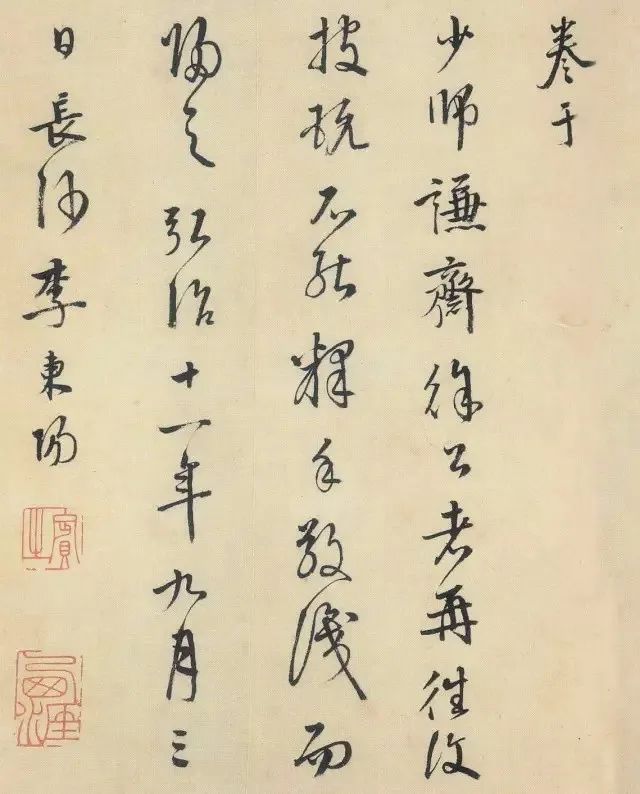 卷于
少師謙齋徐公者再往復
披玩不能釋手敬識而
歸之弘治十一年九月三
日長沙李東陽
賓之